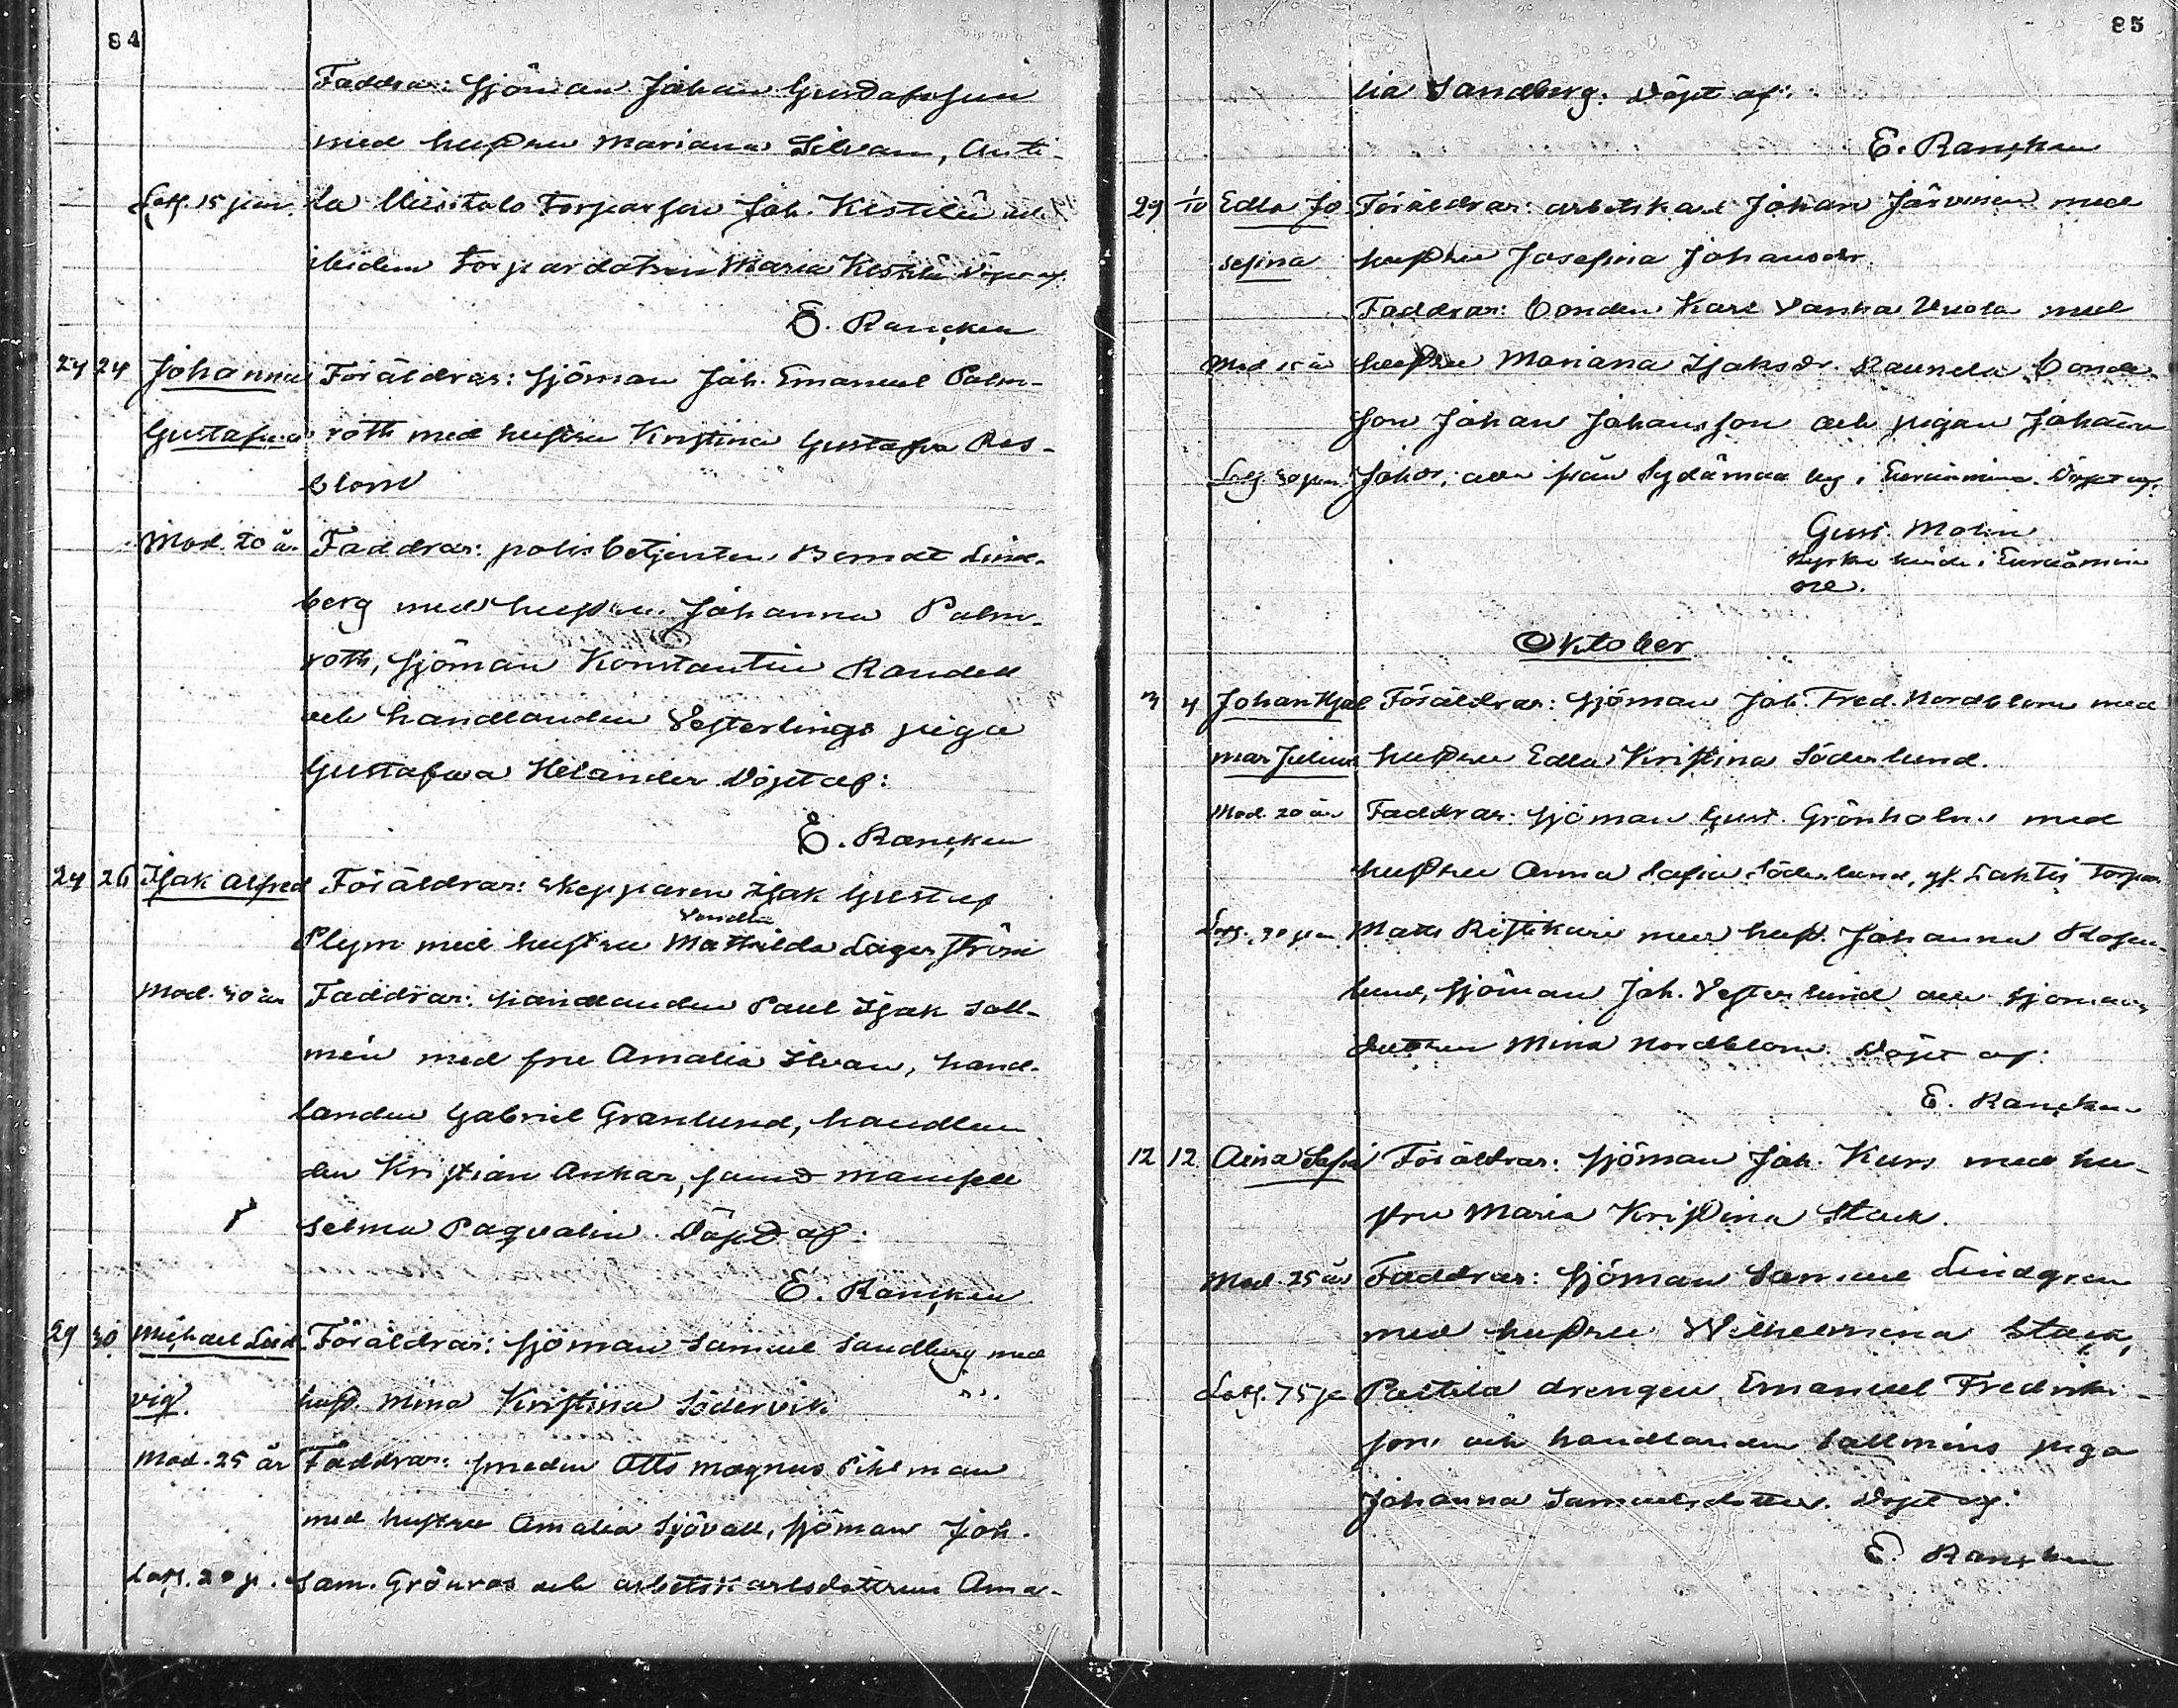 84
Faddrar: sjöman Johan Gustafsson
med hustru Mariana Silvan, Antti-
Lös. 15 pen. la Uusitalo Torparson Joh. Kestilä och
ibidem Torpardottren Maria Kestilä Döpt af.
E. Rancken
24 24 Johanna Föräldrar: sjöman Joh. Emanuel Palm-
Gustafva roth med hustru Kristina Gustafva Ros-
blom
Mod. 20 år Faddrar: polisbetjenten Berndt Lind-
berg med hustru Johanna Palm-
roth, sjöman Konstantin Randell
och handlanden Vesterlings piga
Gustafva Helander Döpt af:
E. Rancken
24 26 Isak Alfred Föräldrar: skepparen Isak Gustaf
Vendla
Plym med hustru Mathilda Lagerström
Mod. 30 år Faddrar: handlanden Paul Isak Sall-
mén med fru Amalia Ilvan, hand-
landen Gabriel Granlund, handlan
den Kristian Ankar, samt mamsell
Selma Paqvalin. Döpt af:
E. Rancken
29 30 Michael Lud- Föräldrar: sjöman Samuel Sandberg med
vig. hust. Mina Kristina Södervik
Mod. 25 år Faddrar: smeden Otto Magnus Pihlman
med hustru Amalia Sjövall, sjöman Joh.
20 p. Sam. Grönros och arbetskarlsdottren Ama-
85
lia Sandberg. Döpt af:
E. Rancken
29 1/10 Edla Jo- Föräldrar: arbetskarl Johan Järvinen med
sefina hustru Josefina Johansdr.
Faddrar: bonden Karl Vanha Uusla med
Mod hustru Mariana Isaksdr. Raunela bonde-
son Johan Johansson och pigan Johanna
50 pen. Johdr, alla från Sydänmaa by i Euraåminne. Döpt af:
Gust. Molin
Kyrkoherde i Euraåmin
ne.
Oktober
3 4 Johan Hjal Föräldrar: sjöman Joh. Fred. Nordblom med
mar Julius hustru Edla Kristina Söderlund.
Mod. 20 år Faddrar: sjöman Gust. Grönholm med
hustru Anna Sofia Söderlund, Torpar.
Matts Ristikari med hust. Johanna Rosen-
lund, sjöman Joh. Vesterlund och sjömans
dottren Mina Nordblom. Döpt af:
E. Rancken
12 12 Aina Sofia Föräldrar: sjöman Joh. Kurs med hu-
stru Maria Kristina Stark.
Mod. 25 år Faddrar: sjöman Samuel Lindgren
med hustru Wilhelmina Stark,
75 pe Paitila drengen Emanuel Fredriks-
son och handlanden Sallméns piga
Johanna Samuelsdotter. Döpt af:
E. Rancken